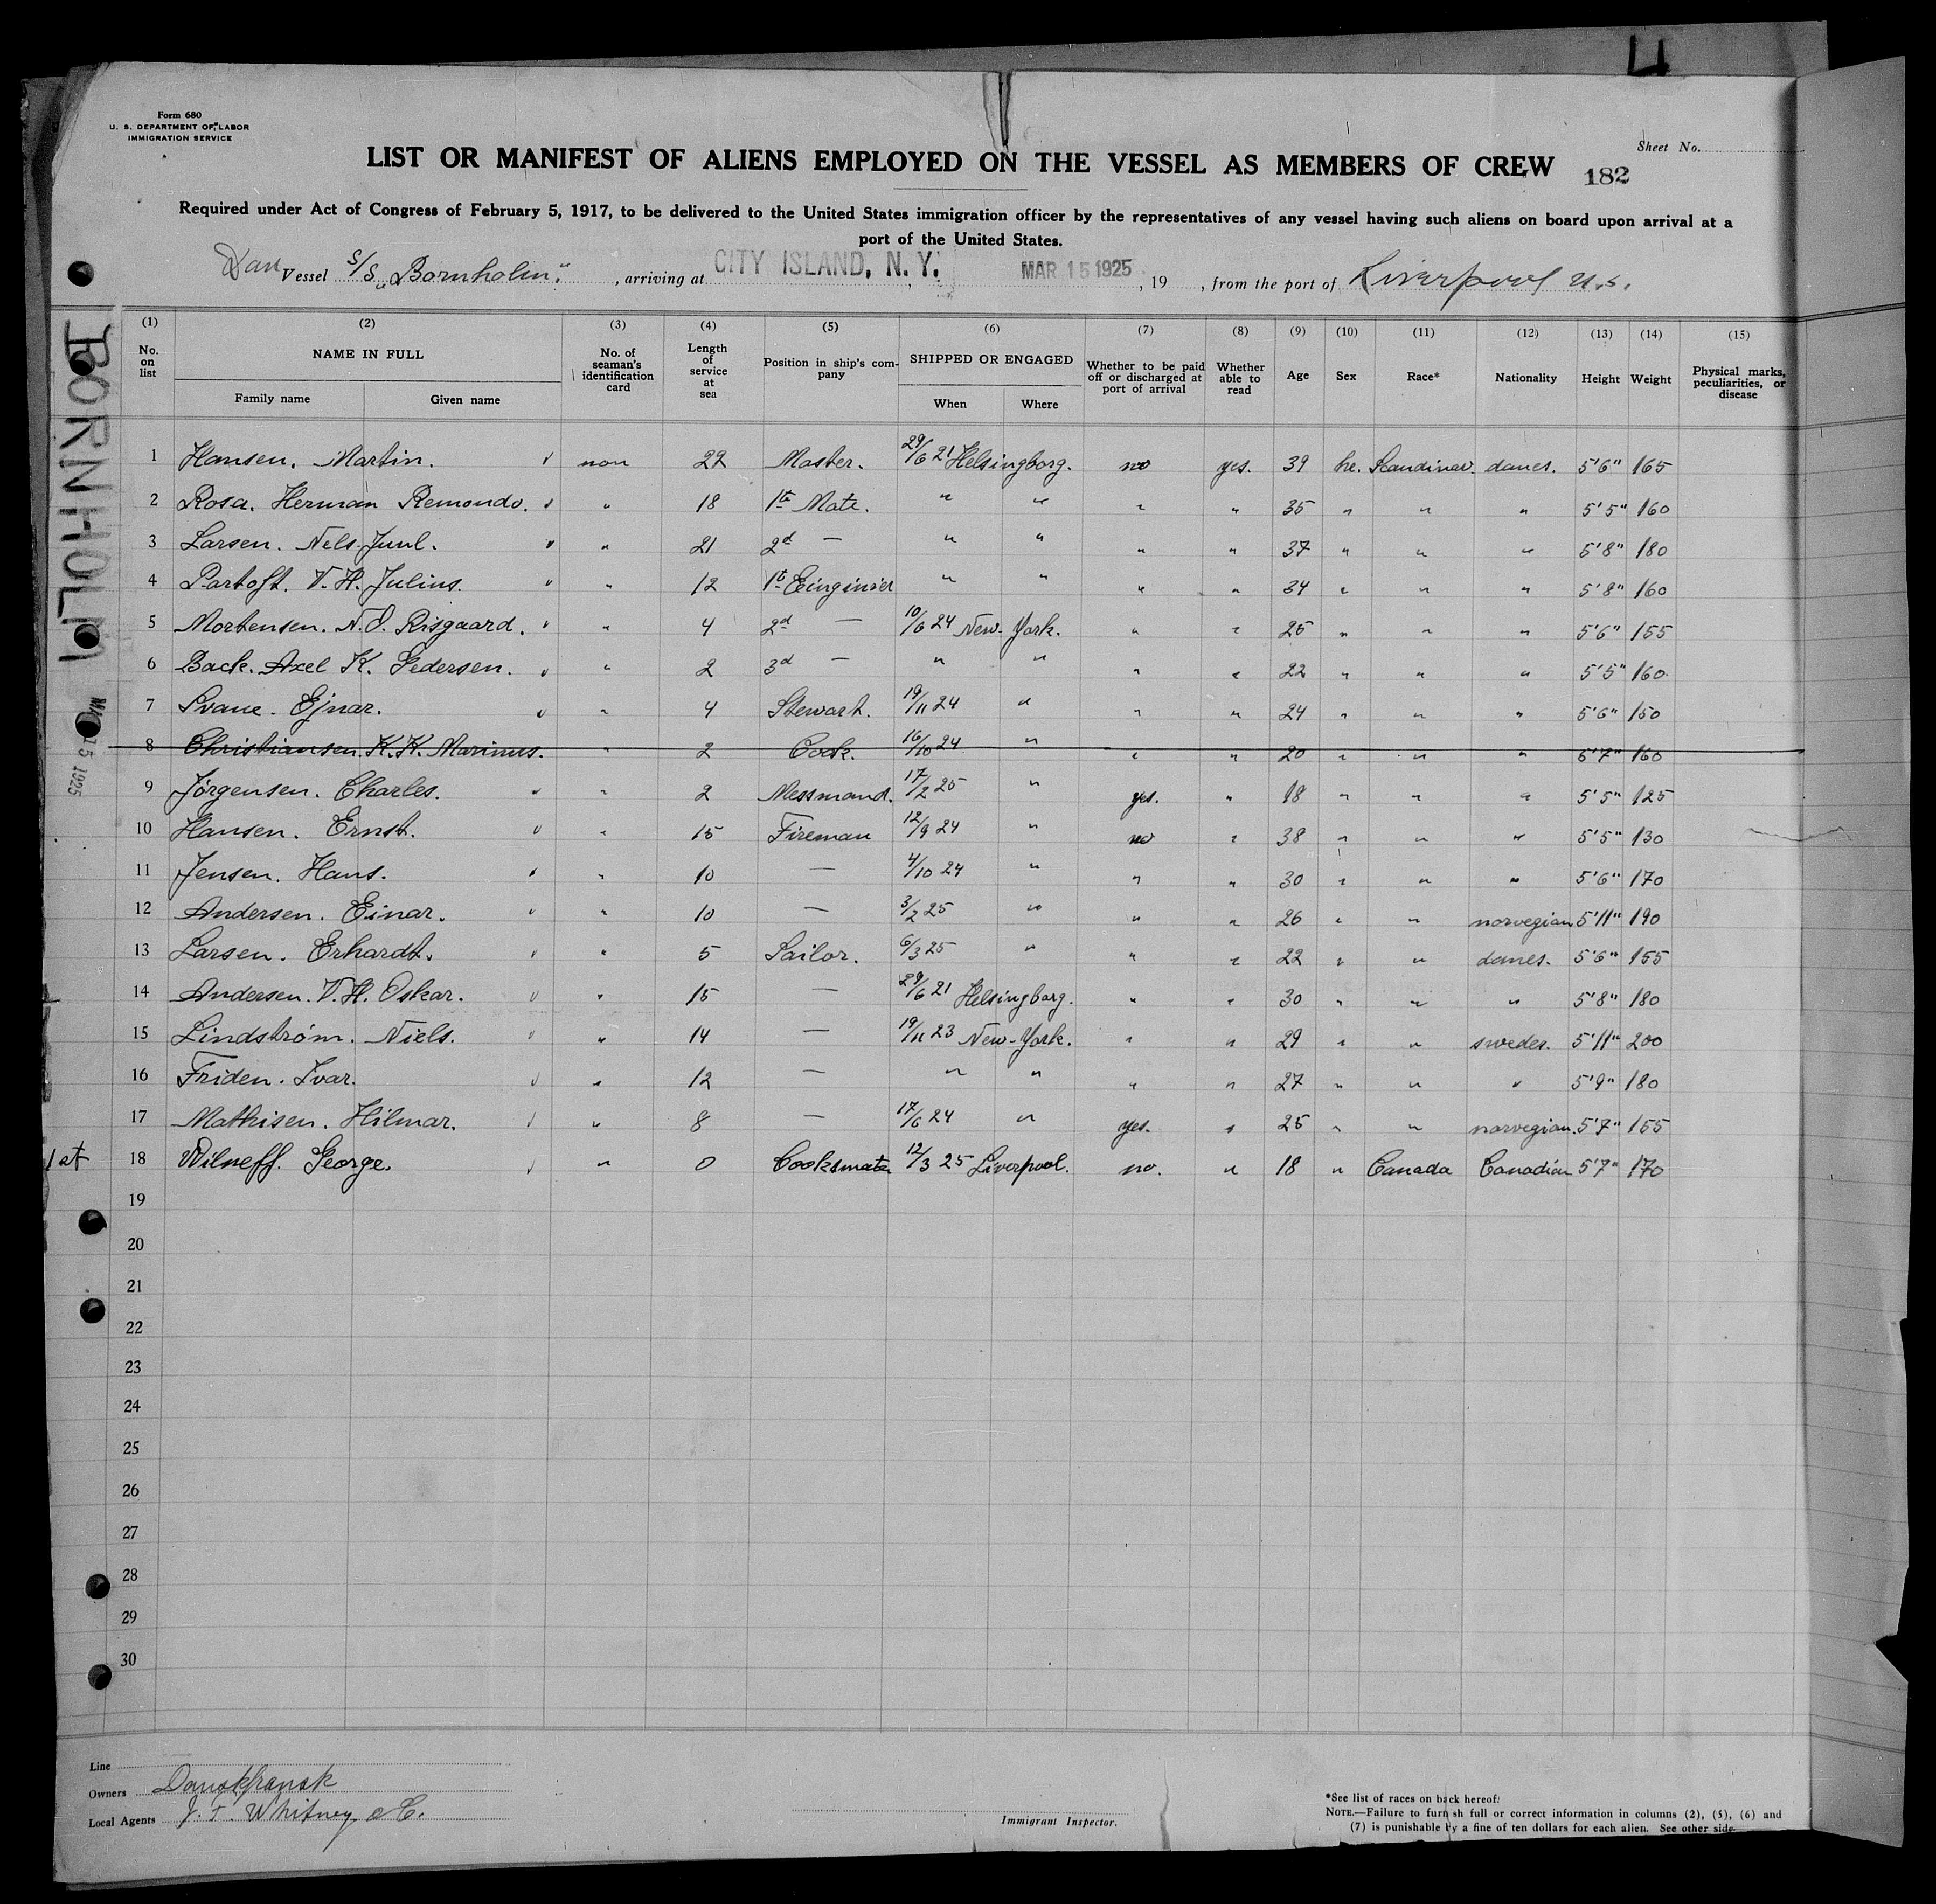 Form 680
U. S. DEPARTMENT OF LABOR
IMMIGRATION SERVICE
Sheet No.
LIST OR MANIFEST OF ALIENS EMPLOYED ON THE VESSEL AS MEMBERS OF CREW 182
Required under Act of Congress of February 5, 1917, to be delivered to the United States immigration officer by the representatives of any vessel having such aliens on board upon arrival at a
port of the United States.
Dan Vessel S/S „Bornholm“, arriving at CITY ISLAND, N. Y. MAR 15 1925, 19 , from the port of Liverpool n.s.
BORNHOLM
(1) (2) (3) (4) (5) (6) (7) (8) (9) (10) (11) (12) (13) (14) (15)
No. on list NAME IN FULL Family name Given name No. of seaman's identification card Length of service at sea Position in ship's company SHIPPED OR ENGAGED When Where Whether to be paid off or discharged at port of arrival Whether able to read Age Sex Race* Nationality Height Weight Physical marks, peculiarities, or disease
1 Hansen. Martin. non 22 Master. 29/6 21 Helsingborg. no yes. 39 he. Scandinav. danes. 5'6" 165
2 Rosa. Herman Remondo. " 18 1te Mate. " " " " 35 " " " 5'5" 160
3 Larsen. Nels Juul. " 21 2d — " " " " 37 " " " 5'8" 180
4 Partoft. V. H. Julius. " 12 1te Einginiér " " " " 34 " " " 5'8" 160
5 Mortensen. N. O. Risgaard. " 4 2d — 10/6 24 New-York. " " 25 " " " 5'6" 155
6 Back. Axel K. Pedersen. " 2 3d — " " " " 22 " " " 5'5" 160.
7 Svane. Ejnar. " 4 Stewart. 19/11 24 " " " 24 " " " 5'6" 150
8 Christiansen. K. K. Marinus. " 2 Cook. 16/10 24 " " " 20 " " " 5'7" 160
9 Jørgensen. Charles. " 2 Messmand. 17/2 25 " yes. " 18 " " " 5'5" 125
10 Hansen. Ernst. " 15 Fireman 12/9 24 " no " 38 " " " 5'5" 130
11 Jensen. Hans. " 10 — 4/10 24 " " " 30 " " " 5'6" 170
12 Andersen. Einar. " 10 — 3/2 25 " " " 26 " " norvegian 5'11" 190
13 Larsen. Erhardt. " 5 Sailor. 6/3 25 " " " 22 " " danes. 5'6" 155
14 Andersen. V. H. Oskar. " 15 — 29/6 21 Helsingborg. " " 30 " " " 5'8" 180
15 Lindstrøm. Niels. " 14 — 19/11 23 New-York. " " 29 " " swedes. 5'11" 200
16 Friden. Ivar. " 12 — " " " " 27 " " " 5'9" 180
17 Mathisen. Hilmar. " 8 — 17/6 24 " yes. " 25 " " norvegian. 5'7" 155
1st 18 Wilneff. George. " 0 Cooksmate 12/3 25 Liverpool. no. " 18 " Canada Canadian 5'7" 170
19
20
21
22
23
24
25
26
27
28
29
30
Line
Owners Danskfransk
Local Agents J. F. Whitney & C.
Immigrant Inspector.
*See list of races on back hereof.
NOTE.—Failure to furnish full or correct information in columns (2), (5), (6) and
(7) is punishable by a fine of ten dollars for each alien. See other side.